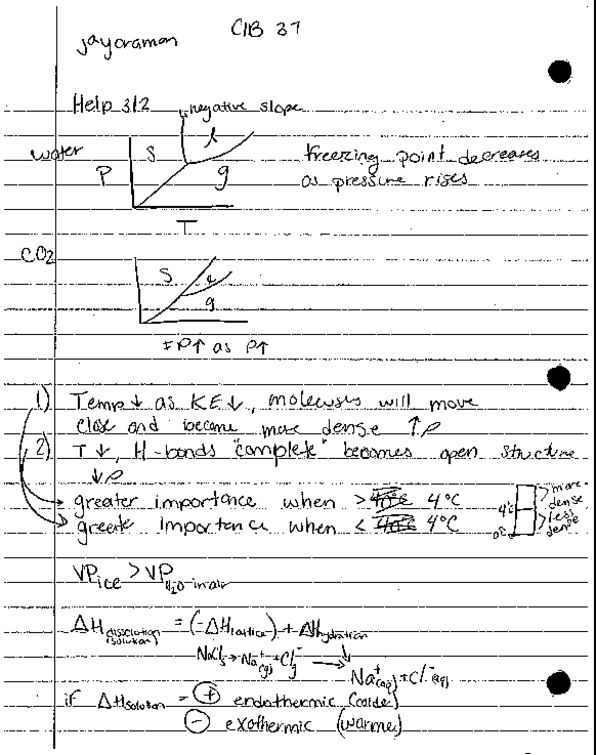 jayoraman
CHB 37
Help 312
negative slope
water
P
S
l
g
T
freezing point decreases
as pressure rises
CO2
S
l
g
FP↑ as P↑
1) Temp ↓ as KE ↓, molecules will move
close and become more dense ↑ρ
2) T ↓, H-bonds "complete" becomes open structure
↓ρ
greater importance when > 4°C
greate importance when < 4°C
more
dense
4°C
less
dense
0°C
VPice > VP H2O-in air
ΔH dissolution (solution) = (-ΔH lattice) + ΔH hydration
NaCl s → Na+ (g) + Cl- g → Na+ (aq) + Cl- (aq)
if ΔH solution = + endothermic (colde)
- exothermic (warme)